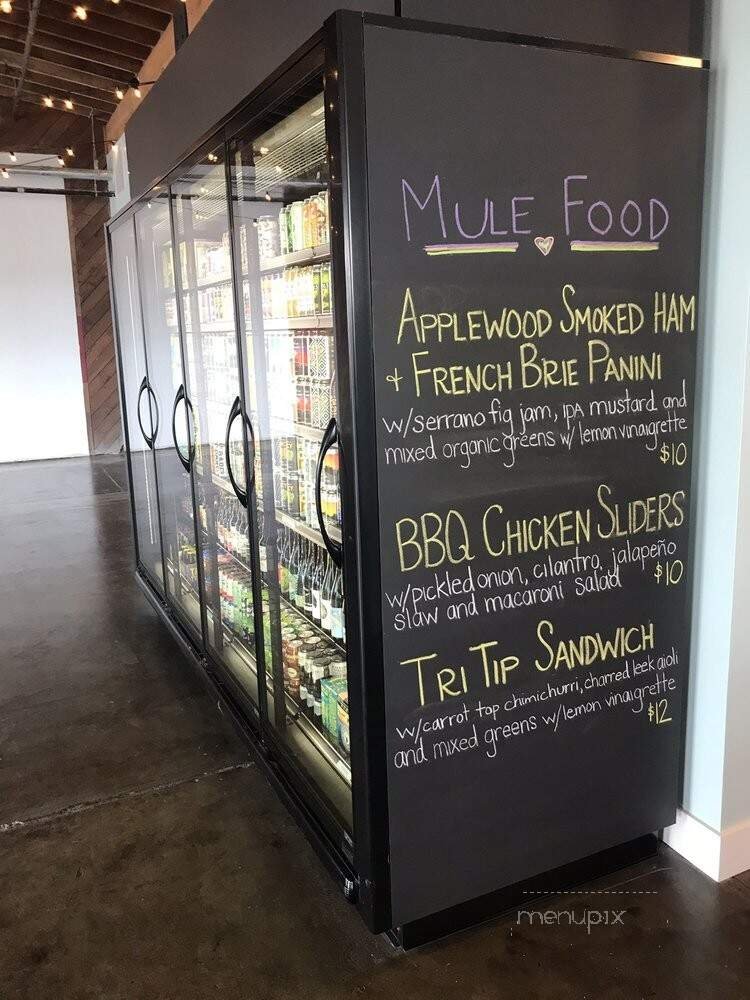 MULE FOOD
APPLEWOOD SMOKED HAM
+ FRENCH BRIE PANINI
w/serrano fig jam, IPA mustard and
mixed organic greens w/ lemon vinaigrette
$10
BBQ CHICKEN SLIDERS
w/pickled onion, cilantro, jalapeño
slaw and macaroni salad $10
TRI TIP SANDWICH
w/carrot top chimichurri, charred leek aioli
and mixed greens w/lemon vinaigrette
$12
menupix